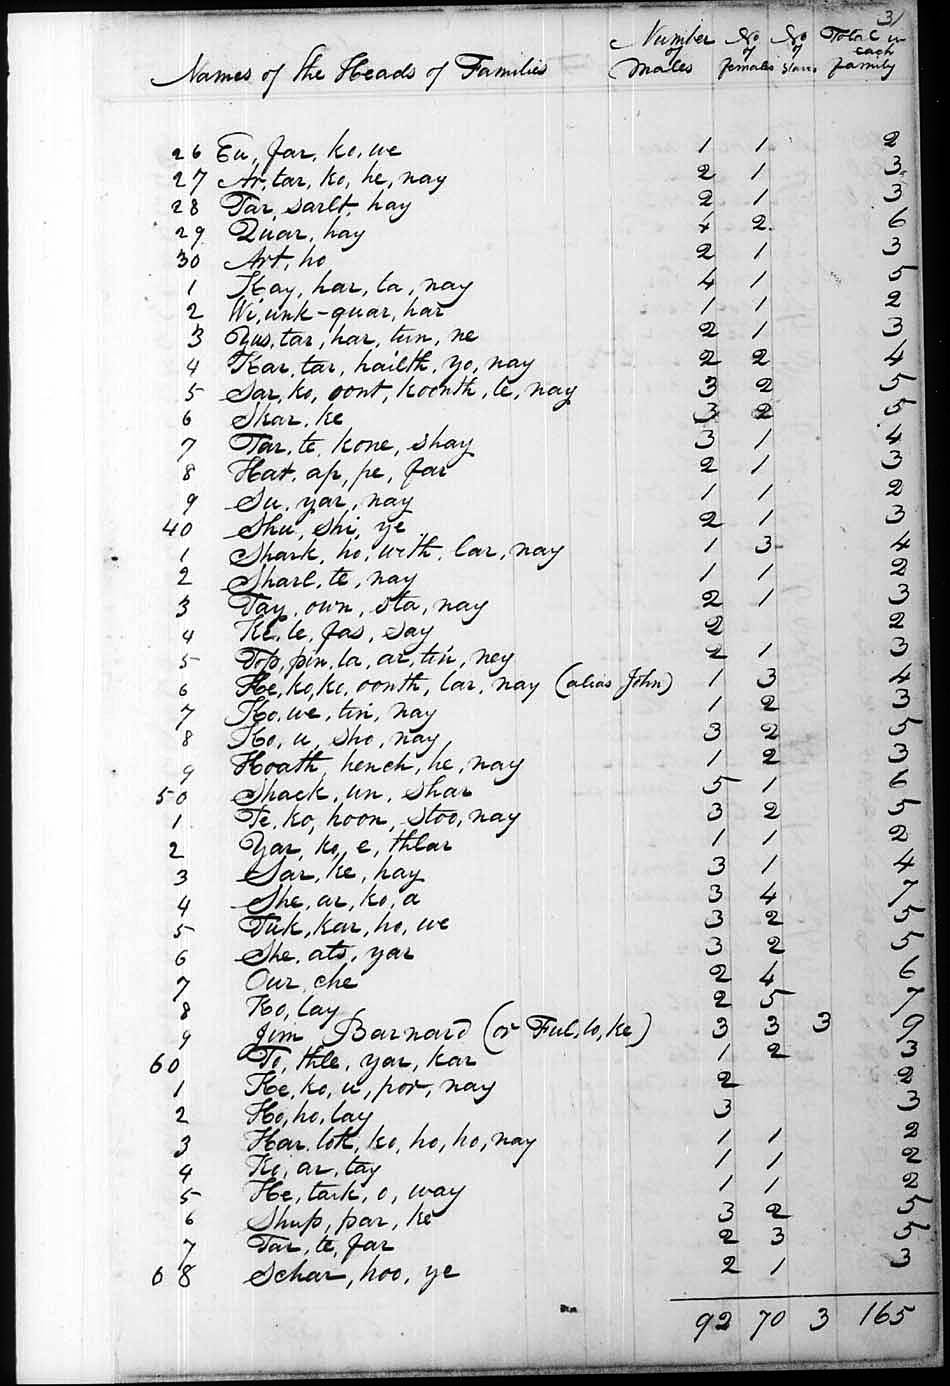 31
Names of the Heads of Families Number of Males No of females No of Slaves Total in each family
26 Eu, far, ko, we 1 1 2
27 Ar, tar, ko, he, nay 2 1 3
28 Tar, sarlt, hay 2 1 3
29 Quar, hay 4 2 6
30 Art, ho 2 1 3
1 Kay, har, la, nay 4 1 5
2 Wi, unk-quar, har 1 1 2
3 Yus, tar, har, tun, ne 2 1 3
4 Kar, tar, hailth, yo, nay 2 2 4
5 Sar, ko, oont, koonth, le, nay 3 2 5
6 Skar, ke 3 2 5
7 Tar, te, kone, shay 3 1 4
8 Hat, ap, pe, far 2 1 3
9 Su, yar, nay 1 1 2
40 Shu, shi, ye 2 1 3
1 Shark, ho, with, lar, nay 1 3 4
2 Sharl, te, nay 1 1 2
3 Tay, own, sta, nay 2 1 3
4 Ke, le, fas, say 2 2
5 Top, pin, la, ar, tin, ney 2 1 3
6 He, ko, ko, oonth, lar, nay (alias John) 1 3 4
7 Ko, we, tin, nay 1 2 3
8 Ko, u, sho, nay 3 2 5
9 Hoath, hench, he, nay 1 2 3
50 Shack, un, shar 5 1 6
1 Te, ko, hoon, stoo, nay 3 2 5
2 Yar, ko, e, thlar 1 1 2
3 Sar, ke, hay 3 1 4
4 She, ar, ko, a 3 4 7
5 Tuk, kar, ho, we 3 2 5
6 She, ats, yar 3 2 5
7 Our, che 2 4 6
8 Ko, lay 2 5 7
9 Jim Barnard (or Ful, lo, ke) 3 3 3 9
60 To, thle, yar, kar 1 2 3
1 Ke, ko, u, por, nay 2 2
2 Ho, ho, lay 3 3
3 Har, lok, ko, ho, ho, nay 1 1 2
4 Ki, ar, tay 1 1 2
5 He, tark, o, way 1 1 2
6 Shup, par, ke 3 2 5
7 Tar, te, far 2 3 5
68 Schar, hoo, ye 2 1 3
92 70 3 165